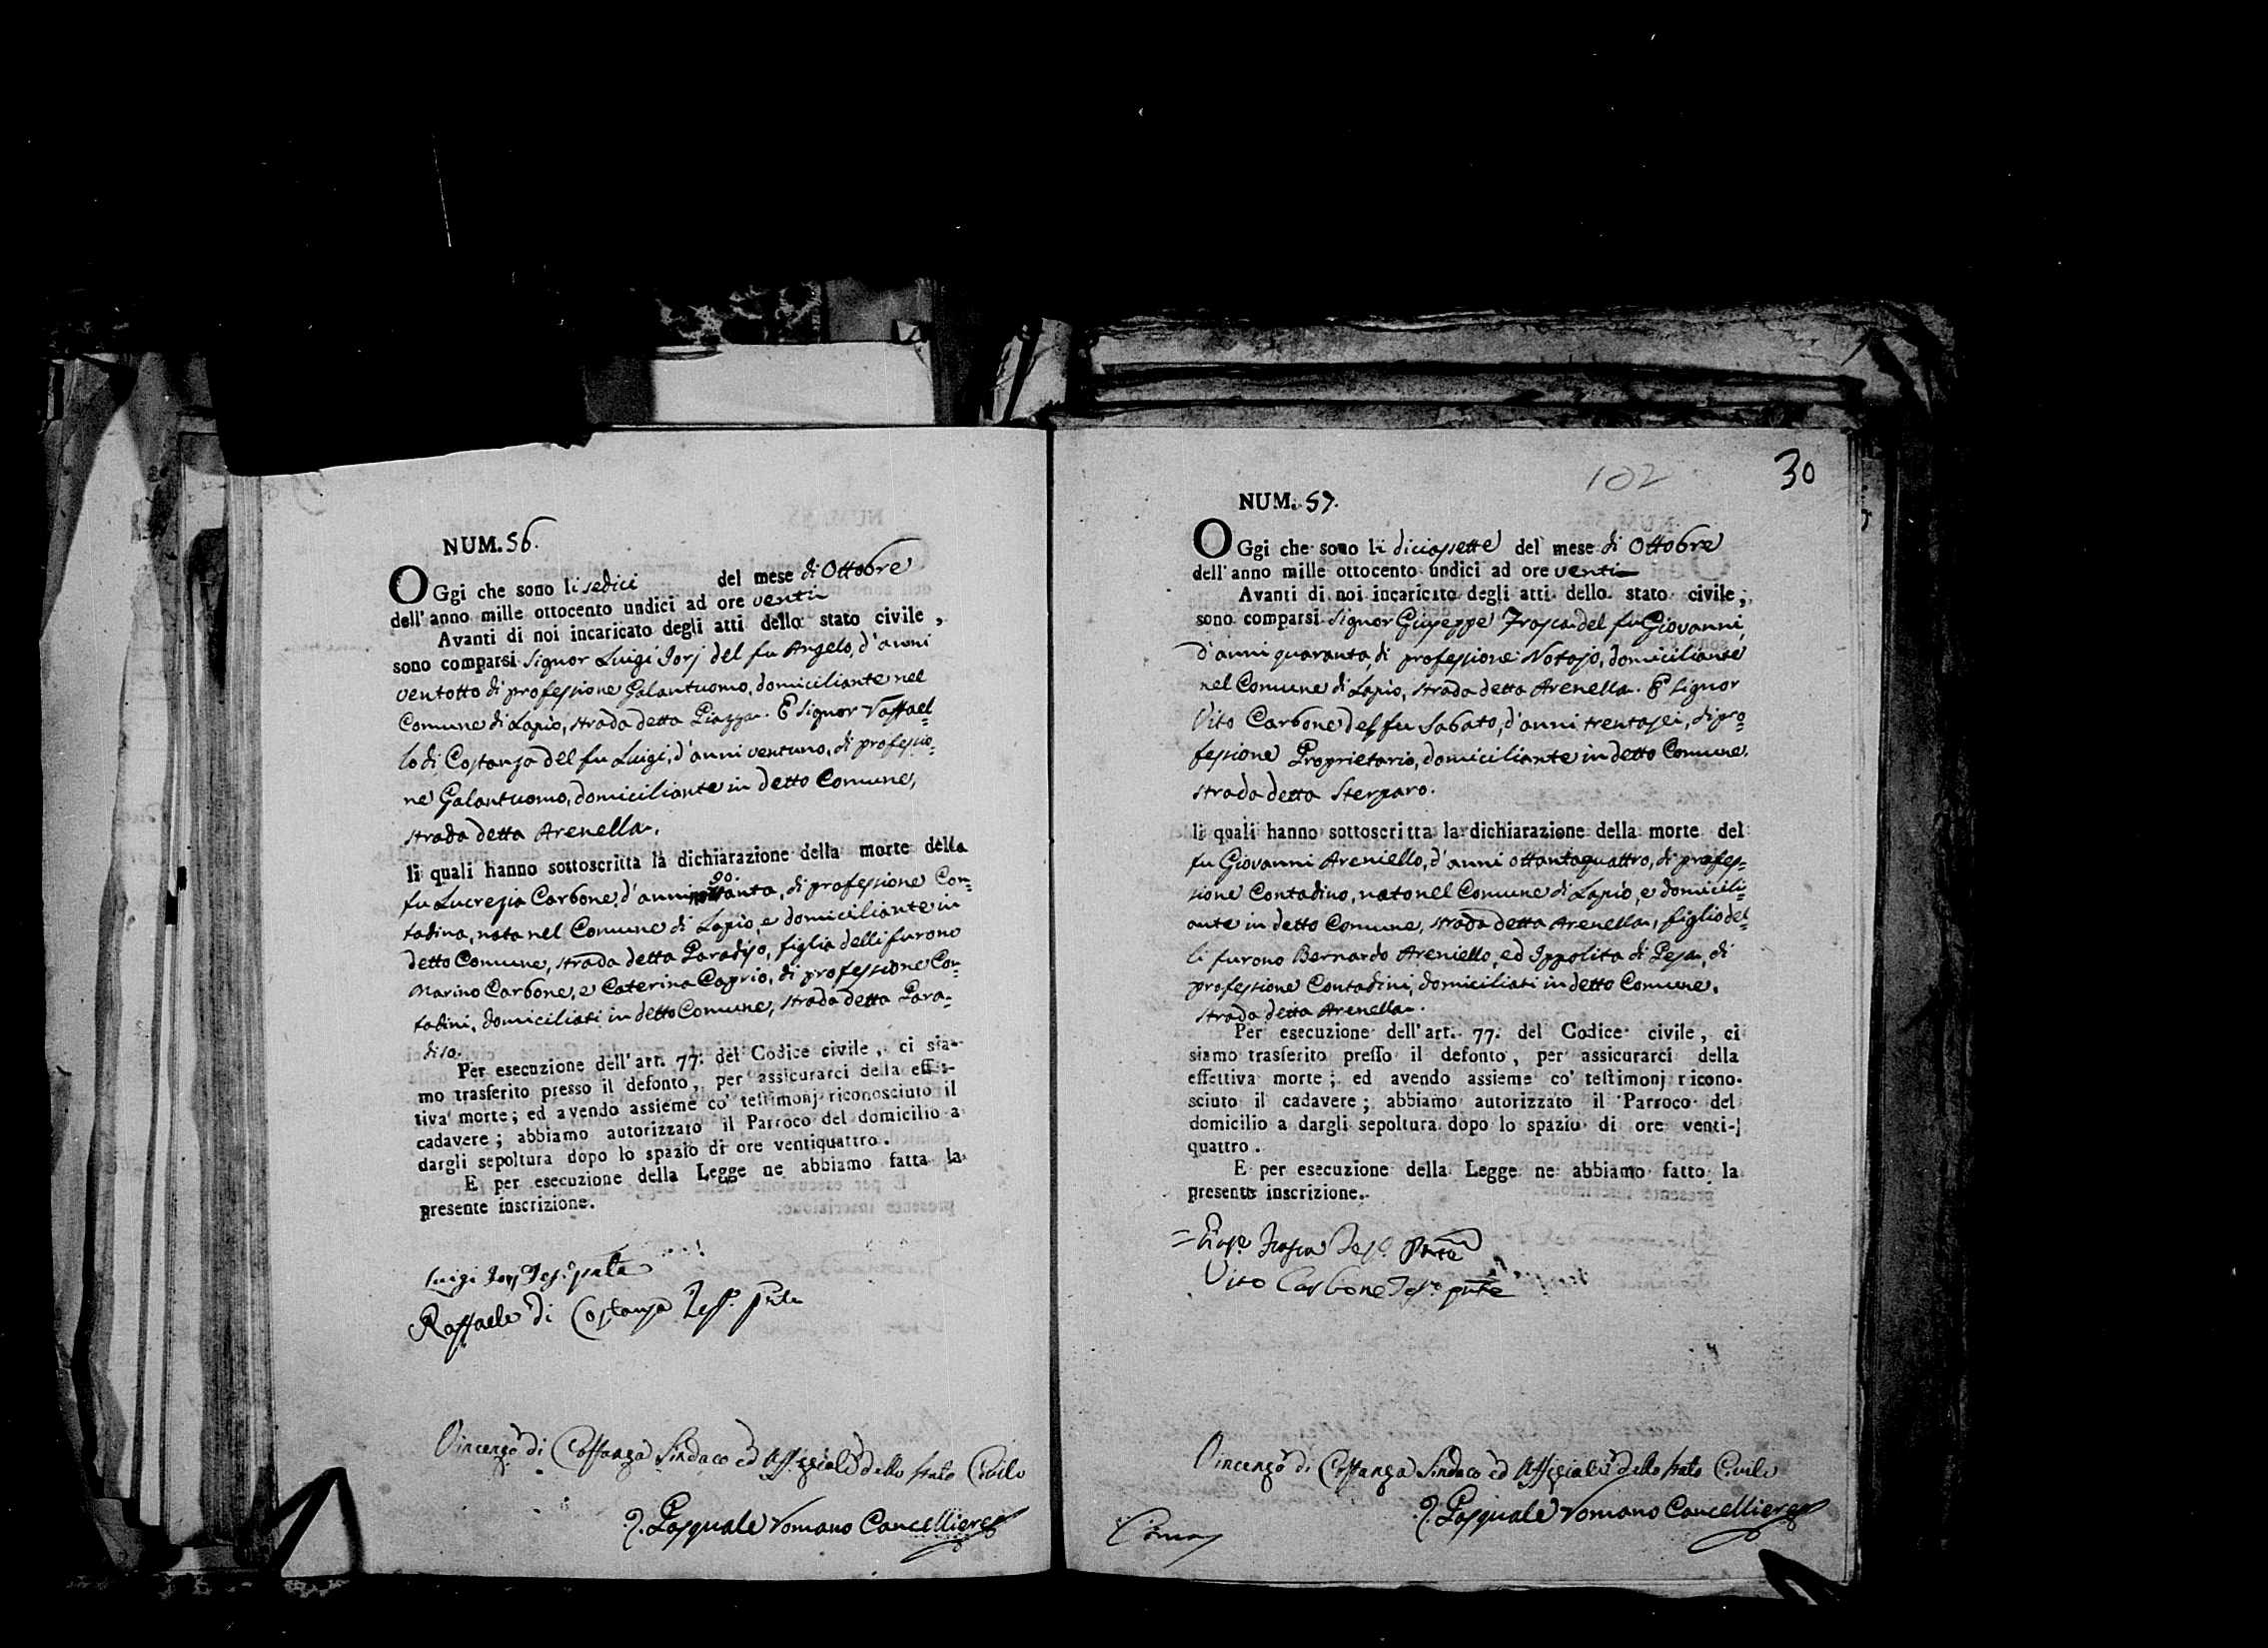 NUM. 56.
OGgi che sono li sedici del mese di Ottobre
dell'anno mille ottocento undici ad ore venti
Avanti di noi incaricato degli atti dello stato civile,
sono comparsi Signor Luigi Iorj del fu Angelo, d'anni
ventotto di professione Galantuomo, domiciliante nel
Comune di Lapio, strada detta Piazza. E Signor Raffael=
lo di Costanza del fu Luigi, d'anni ventuno, di professio=
ne Galantuomo, domiciliante in detto Comune,
strada detta Arenella.
li quali hanno sottoscritta la dichiarazione della morte della
fu Lucrezia Carbone, d'anni 90. di professione Con=
tadina, nata nel Comune di Lapio, e domiciliante in
detto Comune, strada detta Paradiso, figlia delli furono
Marino Carbone, e Caterina Caprio, di professione Con=
tadini, domiciliati in detto Comune, strada detta Para=
diso.
Per esecuzione dell'art. 77. del Codice civile, ci sia-
mo trasferito presso il defonto, per assicurarci della effet-
tiva morte; ed avendo assieme co' testimonj riconosciuto il
cadavere; abbiamo autorizzato il Parroco del domicilio a
dargli sepoltura dopo lo spazio di ore ventiquattro.
E per esecuzione della Legge ne abbiamo fatta la
presente inscrizione.
Luigi Iorj
Raffaele di Costanza
Vincenzo di Costanza Sindaco ed Offiziale dello stato Civile
Pasquale Romano Cancelliere
102
30
NUM. 57.
OGgi che sono li diciassette del mese di Ottobre
dell'anno mille ottocento undici ad ore venti
Avanti di noi incaricato degli atti dello stato civile,
sono comparsi Signor Giuseppe Frasca del fu Giovanni,
d'anni quaranta, di professione Notajo, domiciliante
nel Comune di Lapio, strada detta Arenella. E Signor
Vito Carbone del fu Sabato, d'anni trentasei, di pro=
fessione Proprietario, domiciliante in detto Comune,
strada detta Sterparo.
li quali hanno sottoscritta la dichiarazione della morte del
fu Giovanni Areniello, d'anni ottantaquattro, di profes=
sione Contadino, nato nel Comune di Lapio, e domicili=
ante in detto Comune, strada detta Arenella, figlio del=
li furono Bernardo Areniello, ed Ippolita di Pesa, di
professione Contadini, domiciliati in detto Comune,
strada detta Arenella.
Per esecuzione dell'art. 77. del Codice civile, ci
siamo trasferito presso il defonto, per assicurarci della
effettiva morte; ed avendo assieme co' testimonj ricono-
sciuto il cadavere; abbiamo autorizzato il Parroco del
domicilio a dargli sepoltura dopo lo spazio di ore venti-
quattro.
E per esecuzione della Legge ne abbiamo fatto la
presente inscrizione.
Frasca
Vito Carbone
Vincenzo di Costanza Sindaco ed Offiziale dello stato Civile
Pasquale Romano Cancelliere